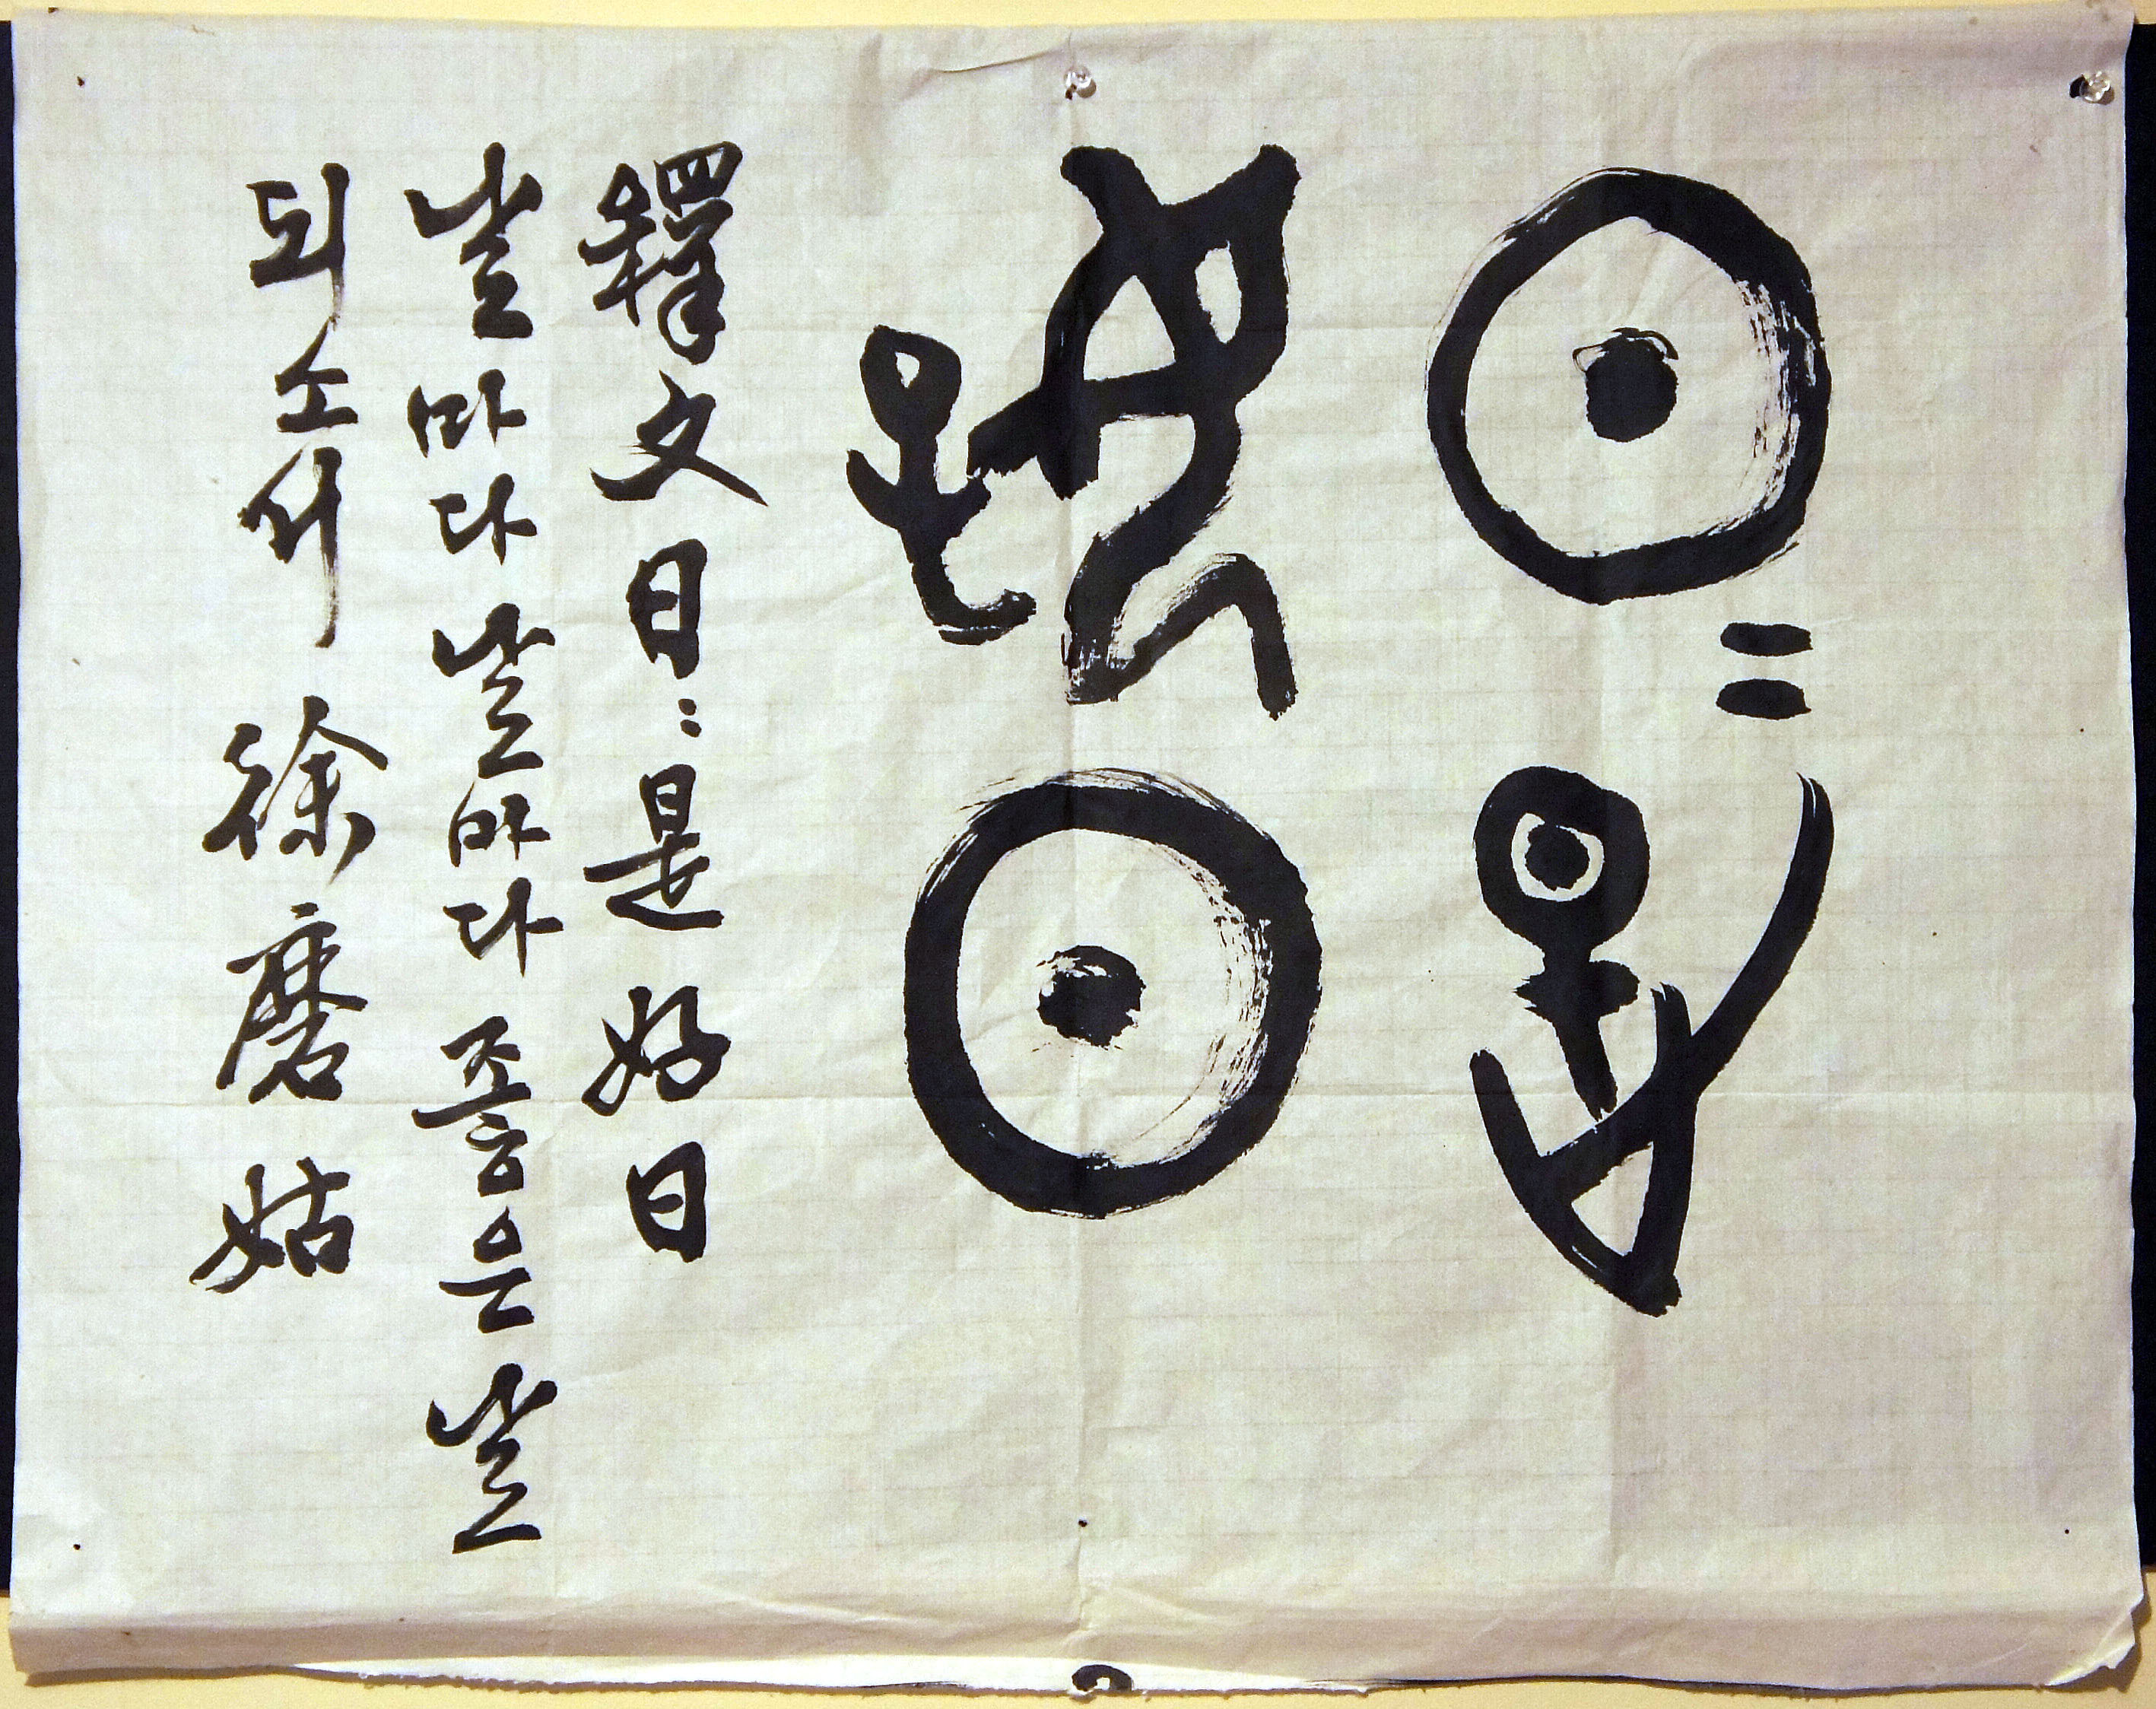 日〻是
好日
釋文日〻是好日
날마다날마다좋은날
되소서 徐磨姑